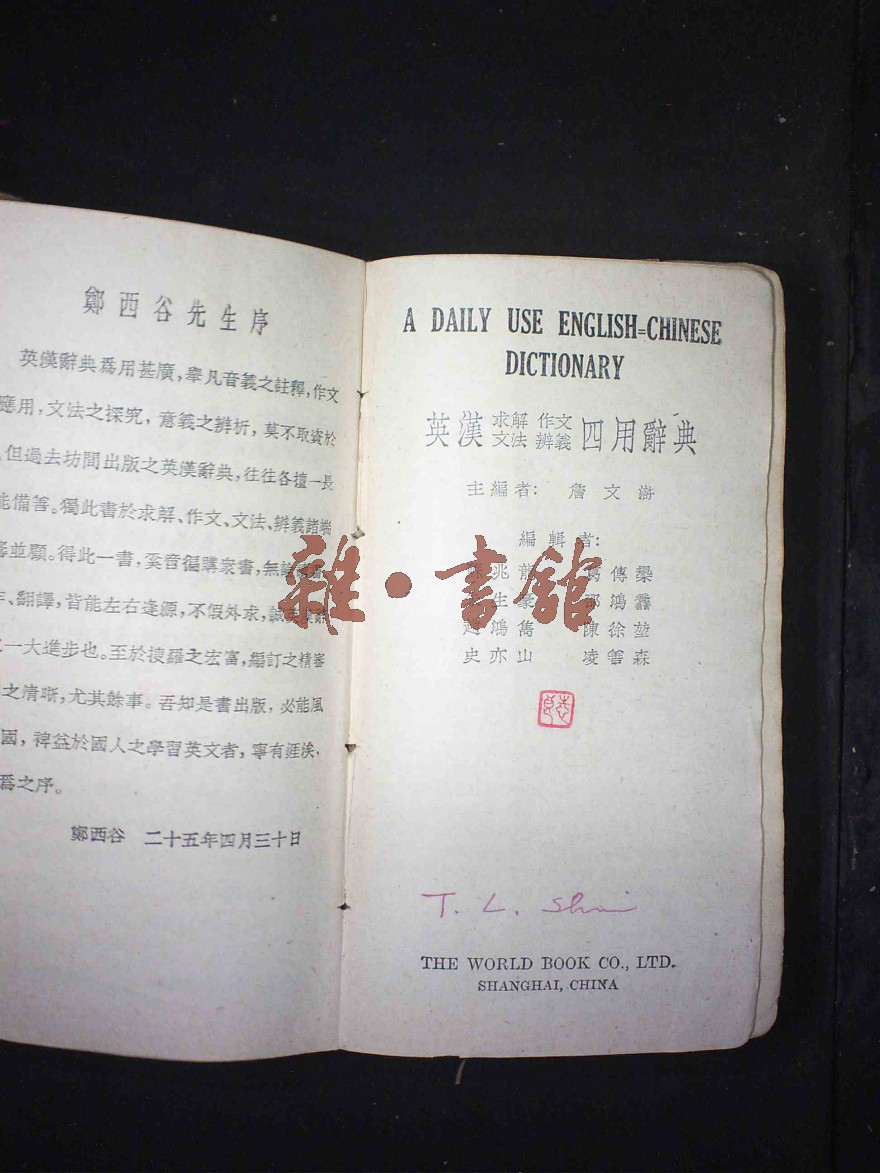 鄭西谷先生序
英漢辭典爲用甚廣，舉凡音義之註釋，作文
應用，文法之探究，意義之辨析，莫不取資於
但過去坊間出版之英漢辭典，往往各擅一長
能備善。獨此書於求解、作文、文法、辨義諸端
並顧。得此一書，奚啻徧購衆書，無論
翻譯，皆能左右逢源，不假外求，誠
一大進步也。至於搜羅之宏富，編訂之精審
之清晰，尤其餘事。吾知是書出版，必能風
國，裨益於國人之學習英文者，寧有涯涘，
爲之序。
鄭西谷 二十五年四月三十日
A DAILY USE ENGLISH=CHINESE
DICTIONARY
英漢 求解 作文 文法 辨義 四用辭典
主編者： 詹文滸
編輯者：
兆 傳樑
生豪 鴻
鴻雋 陳徐堃
史亦山 凌善森
雜·書館
T. L. Shai
THE WORLD BOOK CO., LTD.
SHANGHAI, CHINA